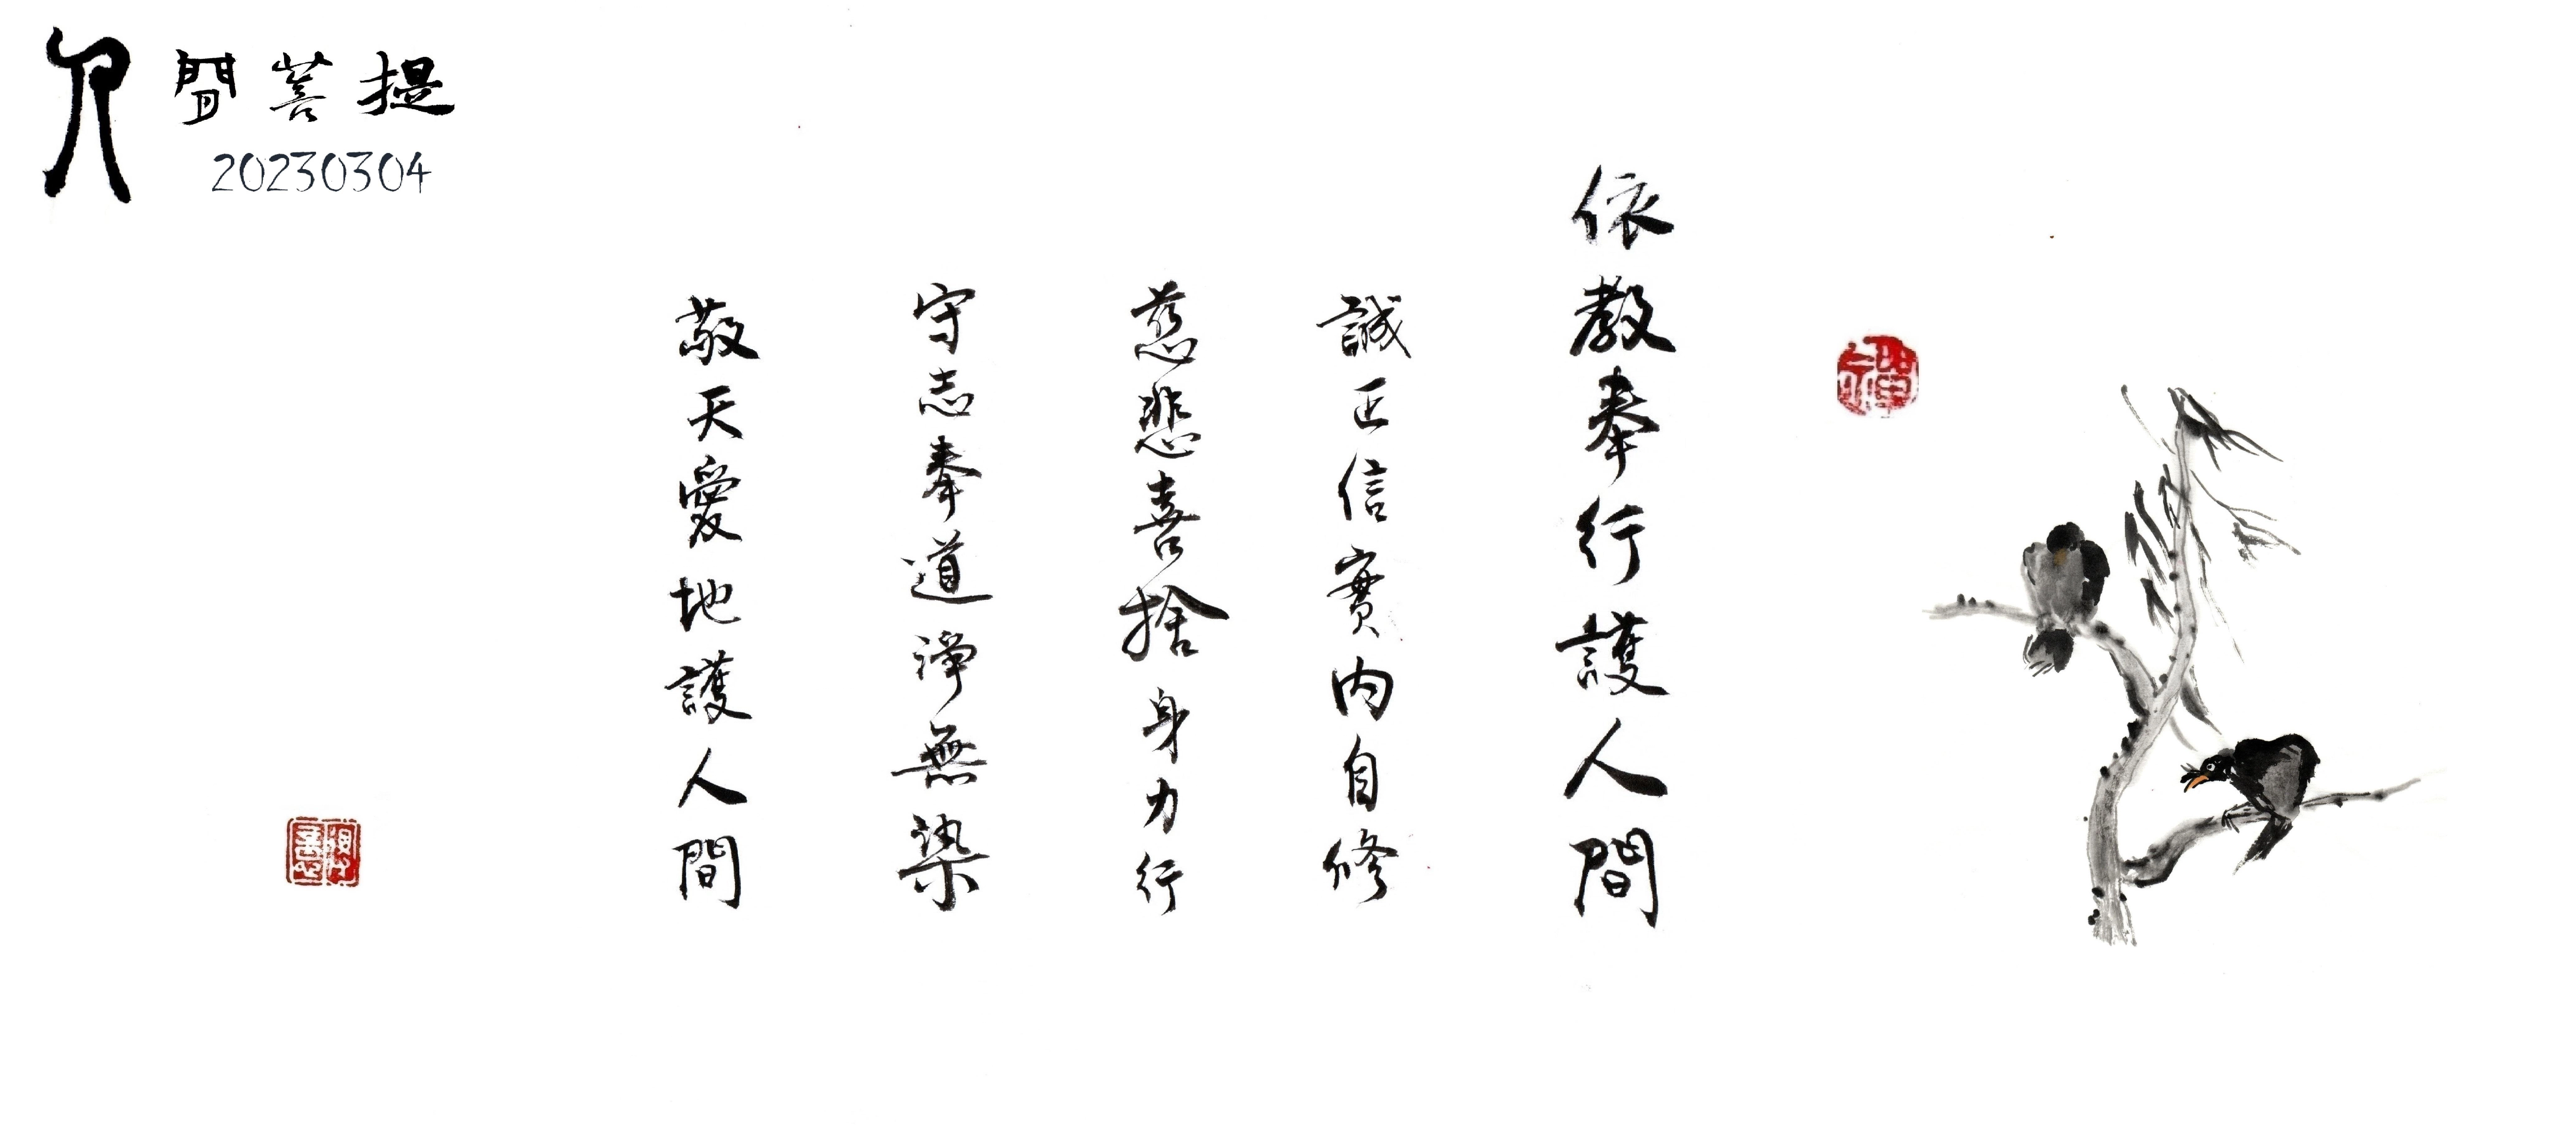 人間菩提
20230304
依教奉行護人間
誠正信實內自修
慈悲喜捨身力行
守志奉道淨無染
敬天愛地護人間
禪